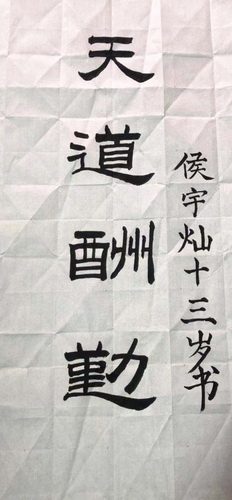 天道酬勤
侯宇灿十三岁书